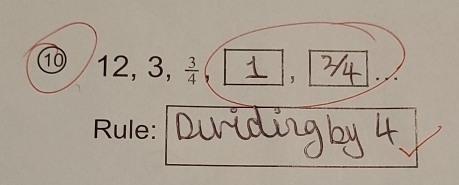 ⑩ 12, 3, 3/4, 1, 3/4 ...
Rule: Dividing by 4